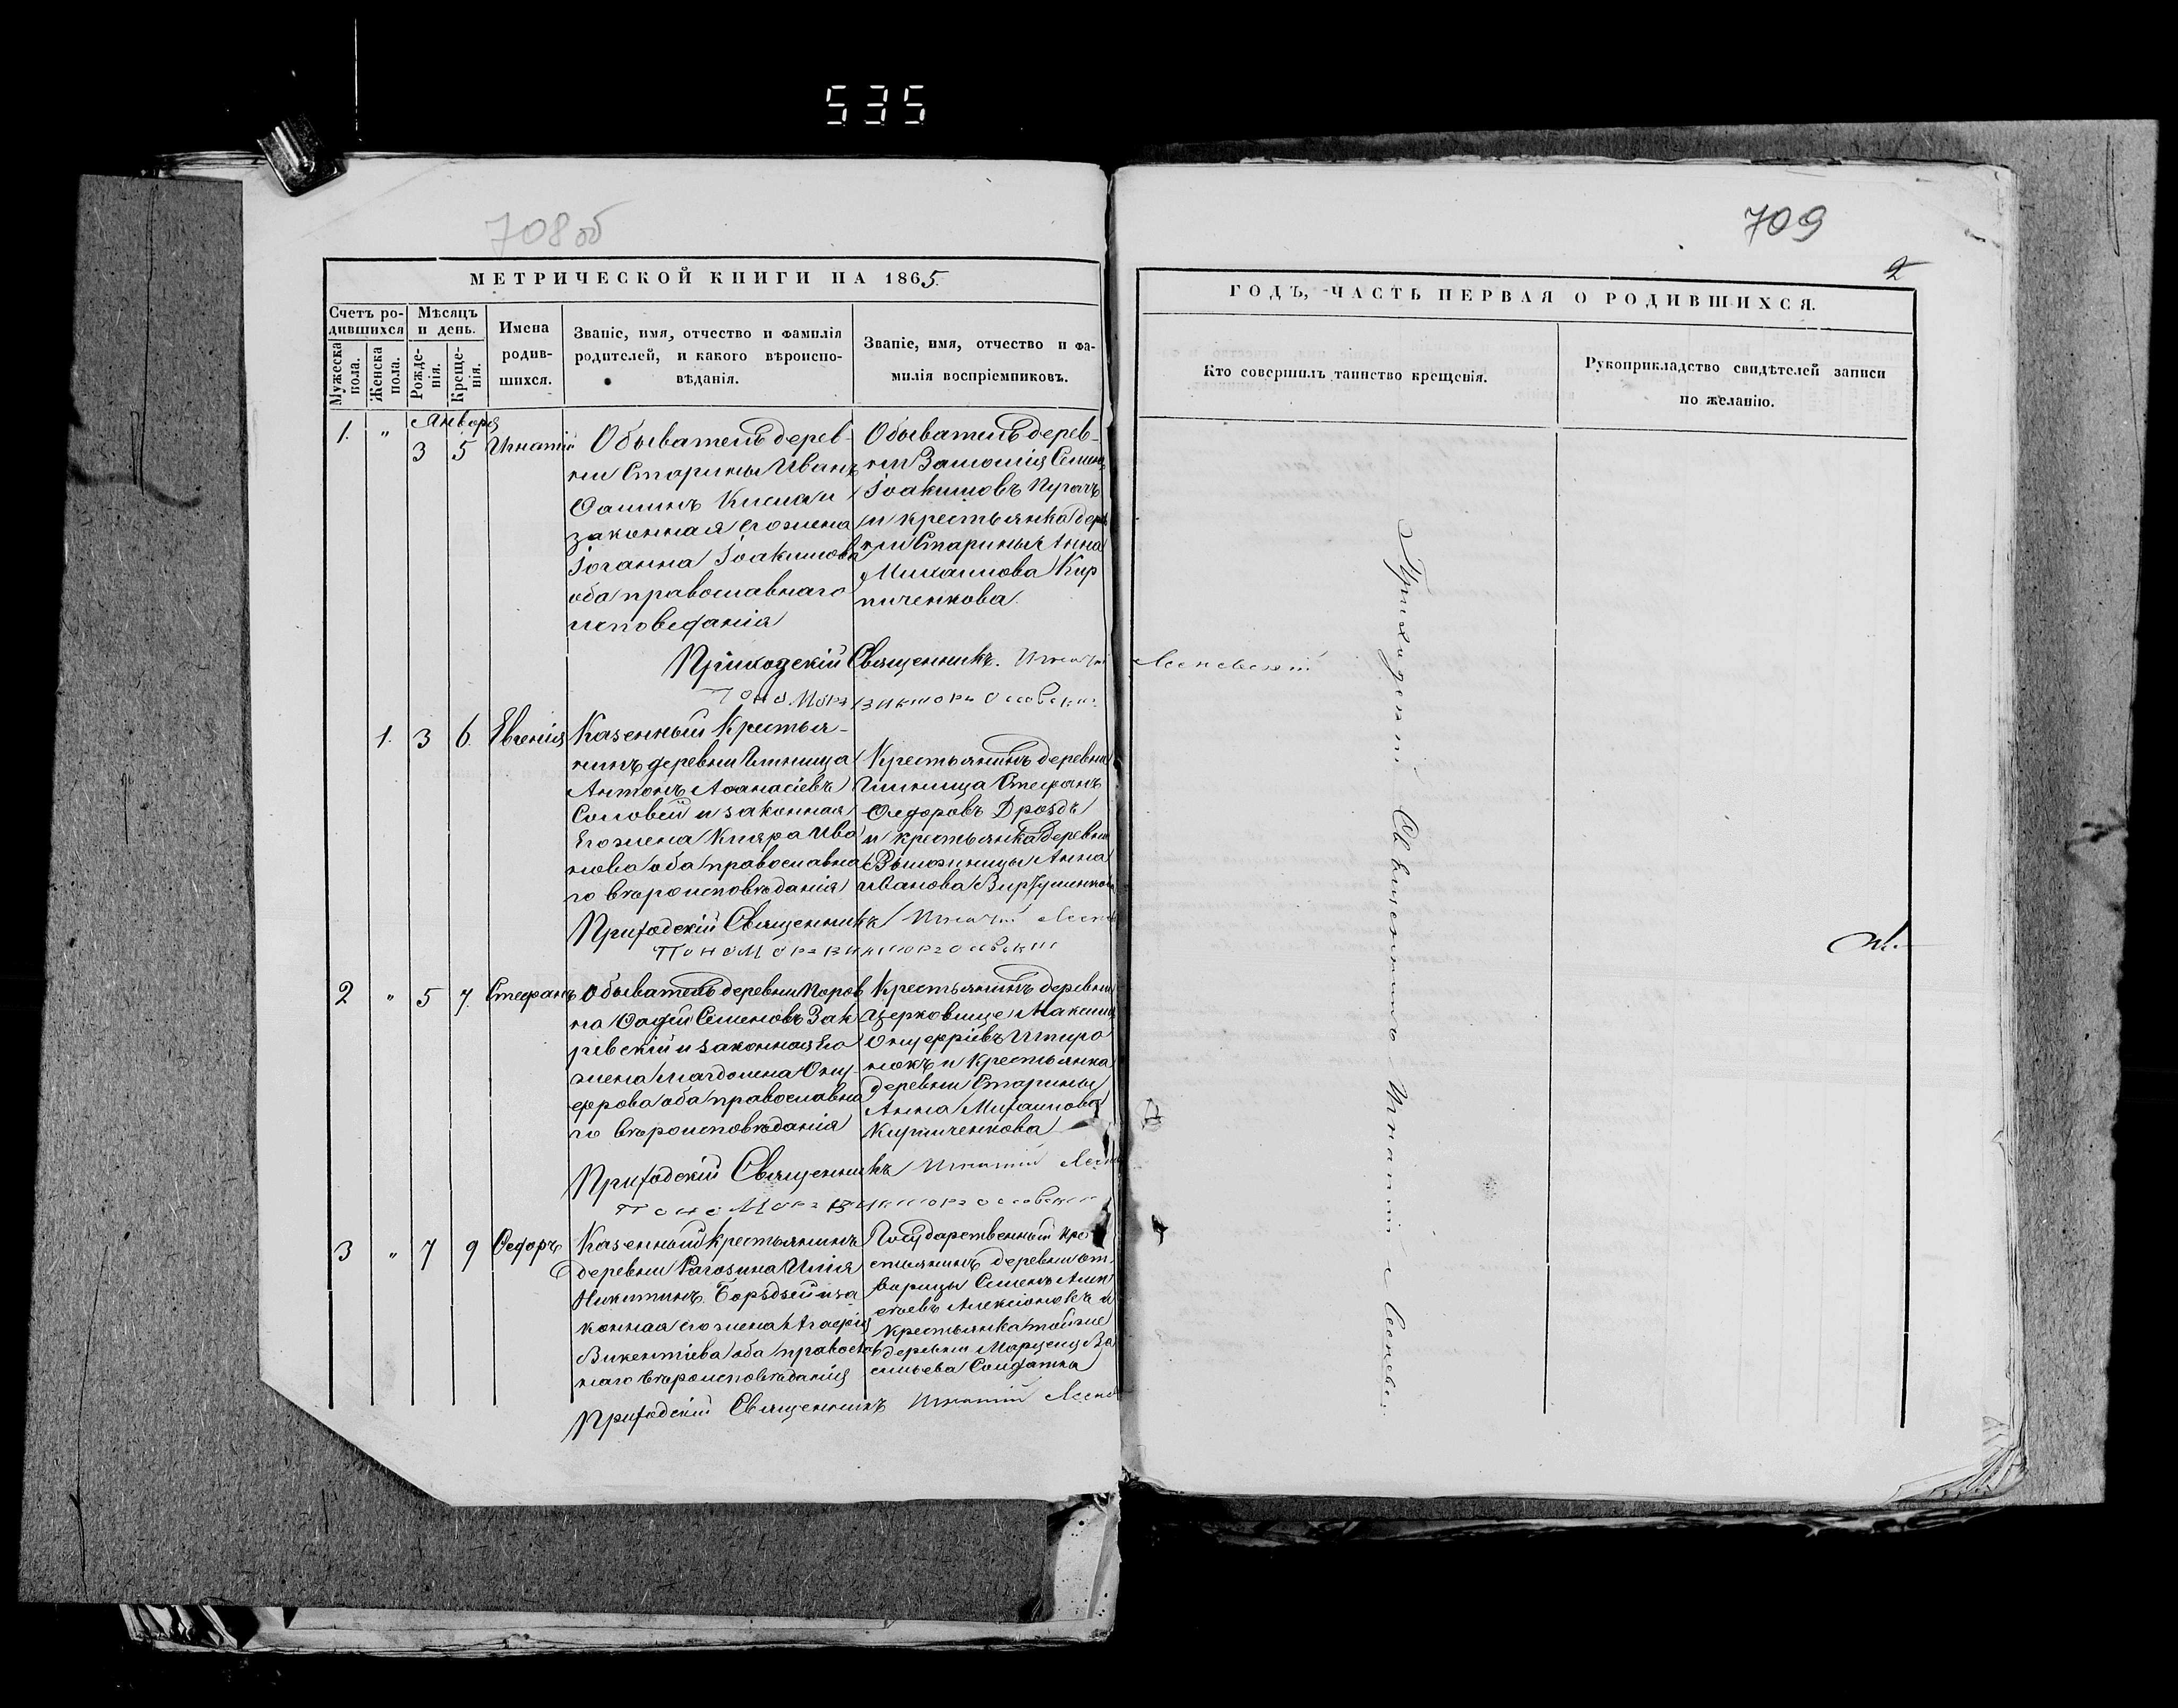 535
708 об
МЕТРИЧЕСКОЙ КНИГИ НА 1865.
Счетъ ро-
дившихся
Мужеска пола.
Женска пола.
Мѣсяцъ
и день.
Рожде-
нія.
Креще-
нія.
Имена
родив-
шихся.
Званіе, имя, отчество и фамилія
родителей, и какого вѣроиспо-
вѣданія.
Званіе, имя, отчество и фа-
милія воспріемниковъ.
Января
1. " 3 5 Игнатій
Обыватель дерев-
ни Старины Иванъ
законная его жена
Іоганна Іоакимова
оба православнаго
исповеданія
Обыватель дерев-
ни
Іоакимовъ Пугачъ
и крестьянка дерев
ни Старины Анна
Михаилова Кир
пиченкова.
Приходскій Священникъ. Игнатій
Пономарь Викторъ
1. 3 6. Евгенія
Казенный Крестья-
нинъ деревни Глиница
Антонъ Аѳанасіевъ
Соловей и законная
Его жена Кляра Ива
нова оба православна
го вѣроисповѣданія
Крестьянинъ деревни
Глиница Стефанъ
Ѳедоровъ Дроздъ
и крестьянка деревни
Анна
Иванова
Приходскій Священникъ Игнатій
Пономарь Викторъ
2 " 5 7. Стефанъ
Обыватель деревни
Семеновъ Зак
ревскій и законная Его
жена Магдолена Ону-
фрова оба православна
го вѣроисповѣданія
Крестьянинъ деревни
Церковище Максимъ
Онуфріевъ
и Крестьянка
деревни Старины
Анна Михаилова
Кирпиченкова
Приходскій Священникъ Игнатій
Пономарь Викторъ
3 " 7 9 Ѳедоръ
Казенный Крестьянинъ
деревни Рагозина Илія
Никитинъ и за
конная его жена Агафія
Викентіева оба православ
наго вѣроисповѣданія
Государственный кре
стьянинъ деревни
Семенъ
и
Крестьянка той же
деревни Ва
сильева
Приходскій Священникъ Игнатій
709
2
ГОДЪ, ЧАСТЬ ПЕРВАЯ О РОДИВШИХСЯ.
Кто совершилъ таинство крещенія.
Рукоприкладство свидѣтелей записи
по желанію.
Приходскій Священникъ Игнатій